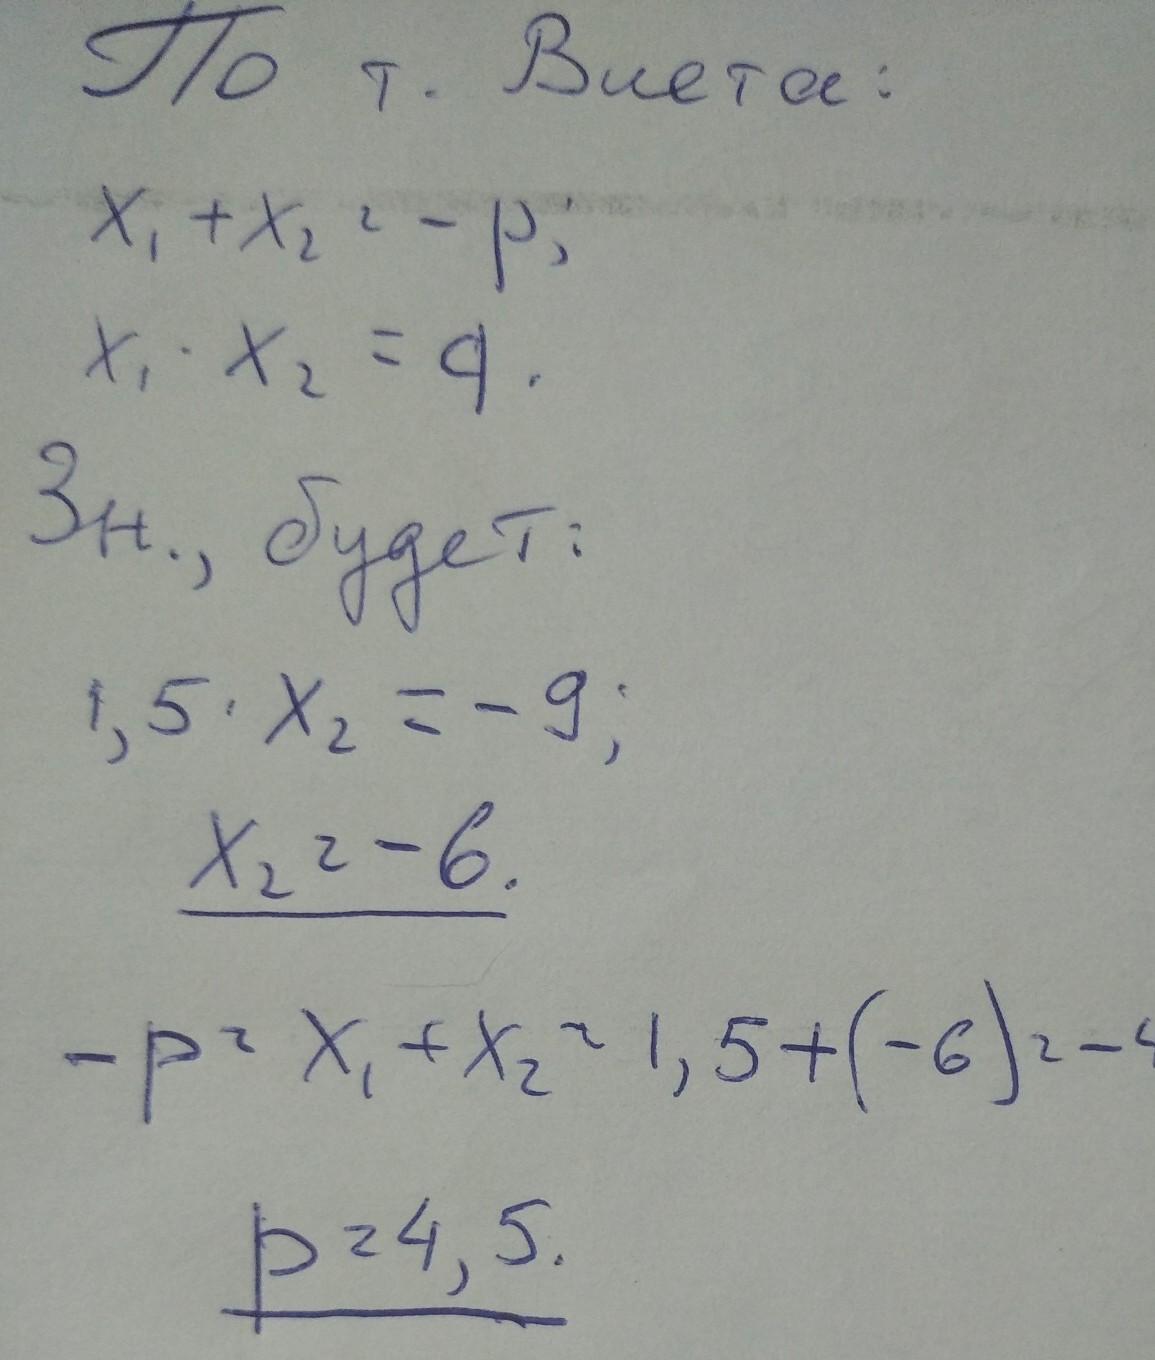 По т. Виета:
x₁ + x₂ = - p;
x₁ · x₂ = q.
Зн., будет:
1,5 · x₂ = - 9;
x₂ = - 6.
- p = x₁ + x₂ = 1,5 + (-6) = - 4
p = 4,5.